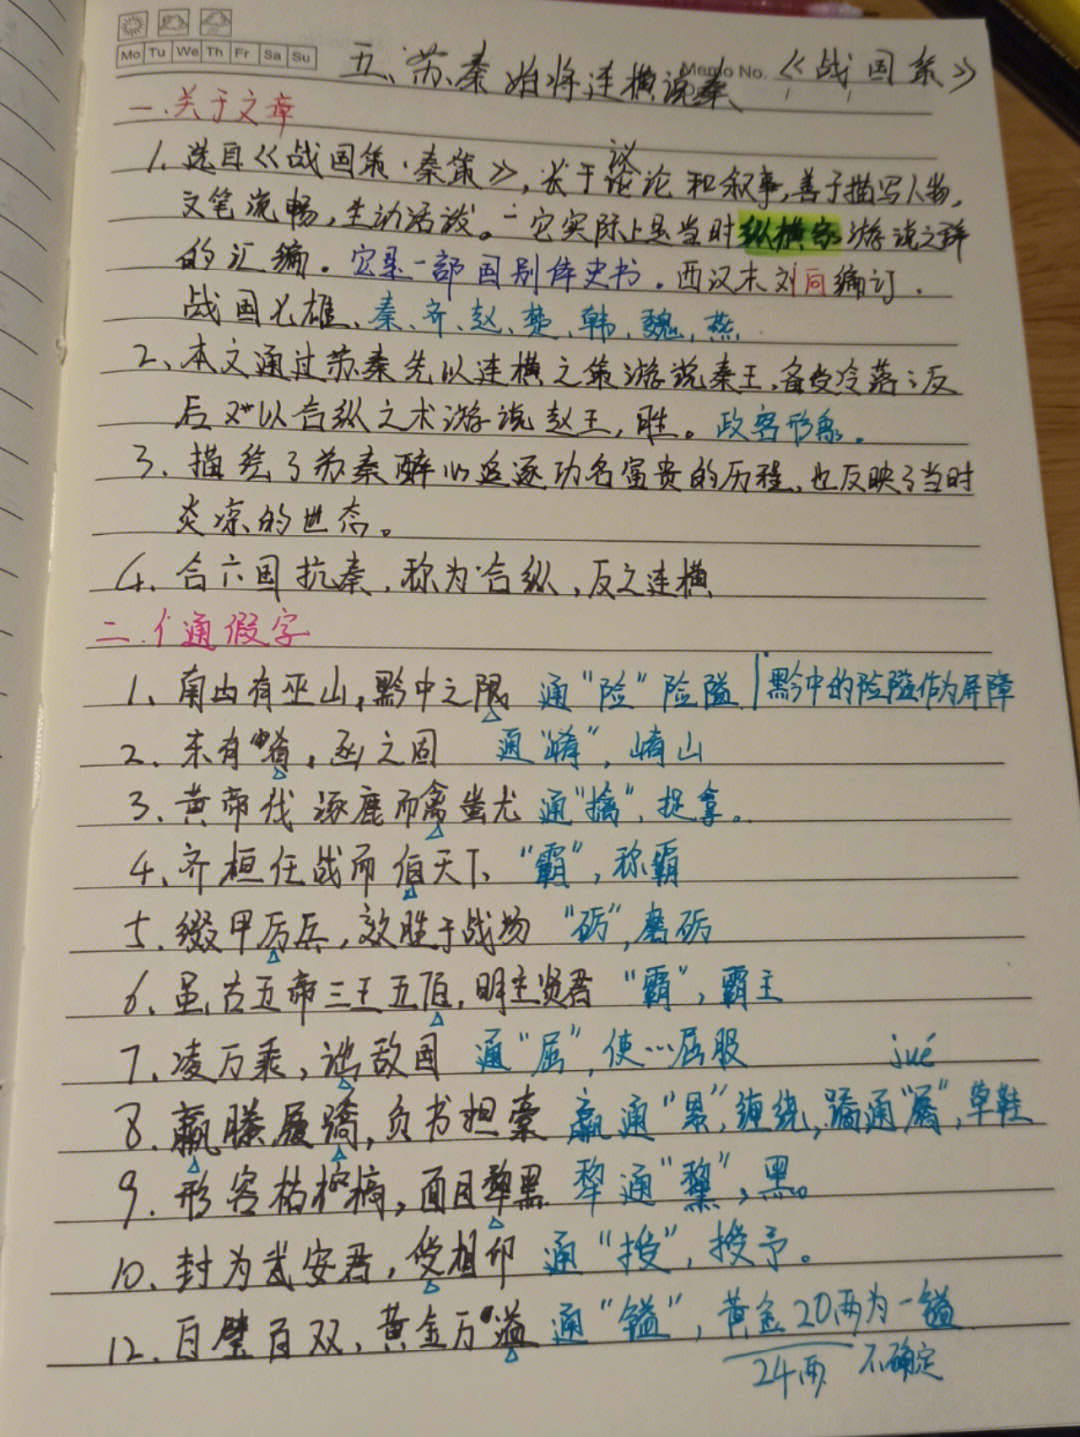 Mo Tu We Th Fr Sa Su
Memo No.
五、苏秦始将连横说秦 《战国策》
一.关于文章
1. 选自《战国策·秦策》,长于议论和叙事,善于描写人物,
文笔流畅,生动活泼。二它实际上是当时纵横家游说之辞
的汇编。它是一部国别体史书。西汉末刘向编订.
战国七雄、秦、齐、赵、楚、韩、魏,燕.
2、本文通过苏秦先以连横之策游说秦王,备受冷落;反
后又以合纵之术游说赵王,胜。政客形象。
3、描绘了苏秦醉心追逐功名富贵的历程,也反映了当时
炎凉的世态。
4. 合六国抗秦,称为合纵,反之连横
二.个通假字
1、南由有巫山,黔中之限 通“险”险隘 黔中的险隘作为屏障
2. 东有肴,函之固 通“崤”,崤山
3. 黄帝伐涿鹿而禽蚩尤 通“擒”,捉拿。
4、齐桓任战而伯天下 “霸”,称霸
5. 缀甲厉兵,效胜于战场 “砺”,磨砺
6. 虽古五帝三王五伯,明主贤君 “霸”,霸主
7、凌万乘,诎敌国 通“屈”,使…屈服
jué
8. 羸滕履蹻,负书担橐 羸通“累”,缠绕,蹻通“屩”,草鞋
9. 形容枯槁,面目犂黑 犂通“黧”,黑。
10、封为武安君,受相印 通“授”,授予。
12、白璧百双,黄金万溢 通“镒”,黄金20两为一镒
24两 不确定